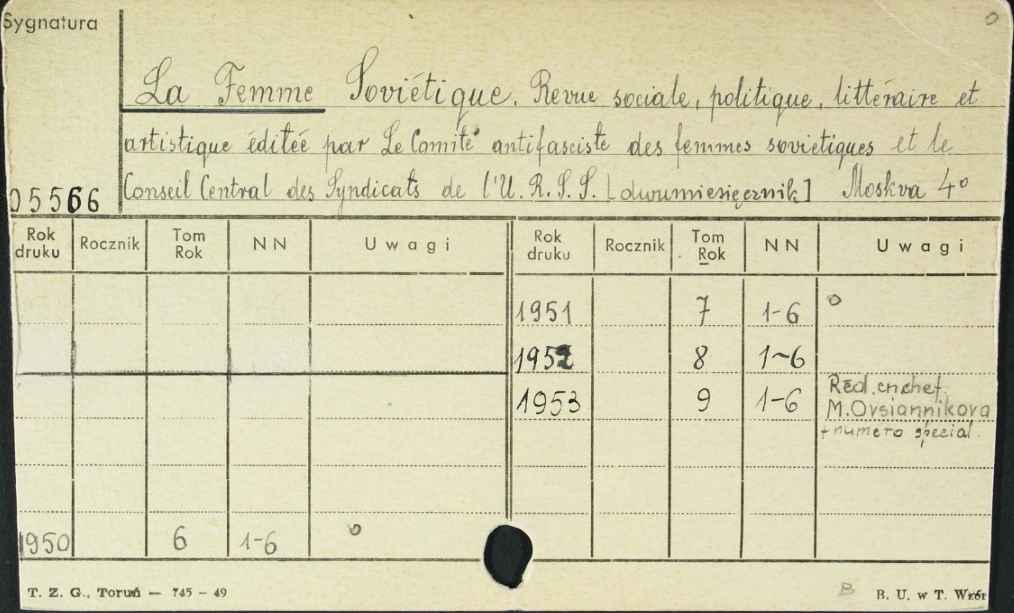 Sygnatura
La Femme Soviétique. Revue sociale, politique, littéraire et
artistique éditée par Le Comité antifasciste des femmes soviétiques et le
05566 Conseil Central des Syndicats de l'U.R.S.S. [dwumiesięcznik] Moskva 4°
Rok druku Rocznik Tom Rok NN Uwagi Rok druku Rocznik Tom Rok NN Uwagi
1951 7 1-6
1952 8 1-6
1953 9 1-6 Réd. en chef.
M. Ovsiannikova
+ numero special.
1950 6 1-6
T. Z. G., Toruń — 745 - 49 B B. U. w T. Wzór